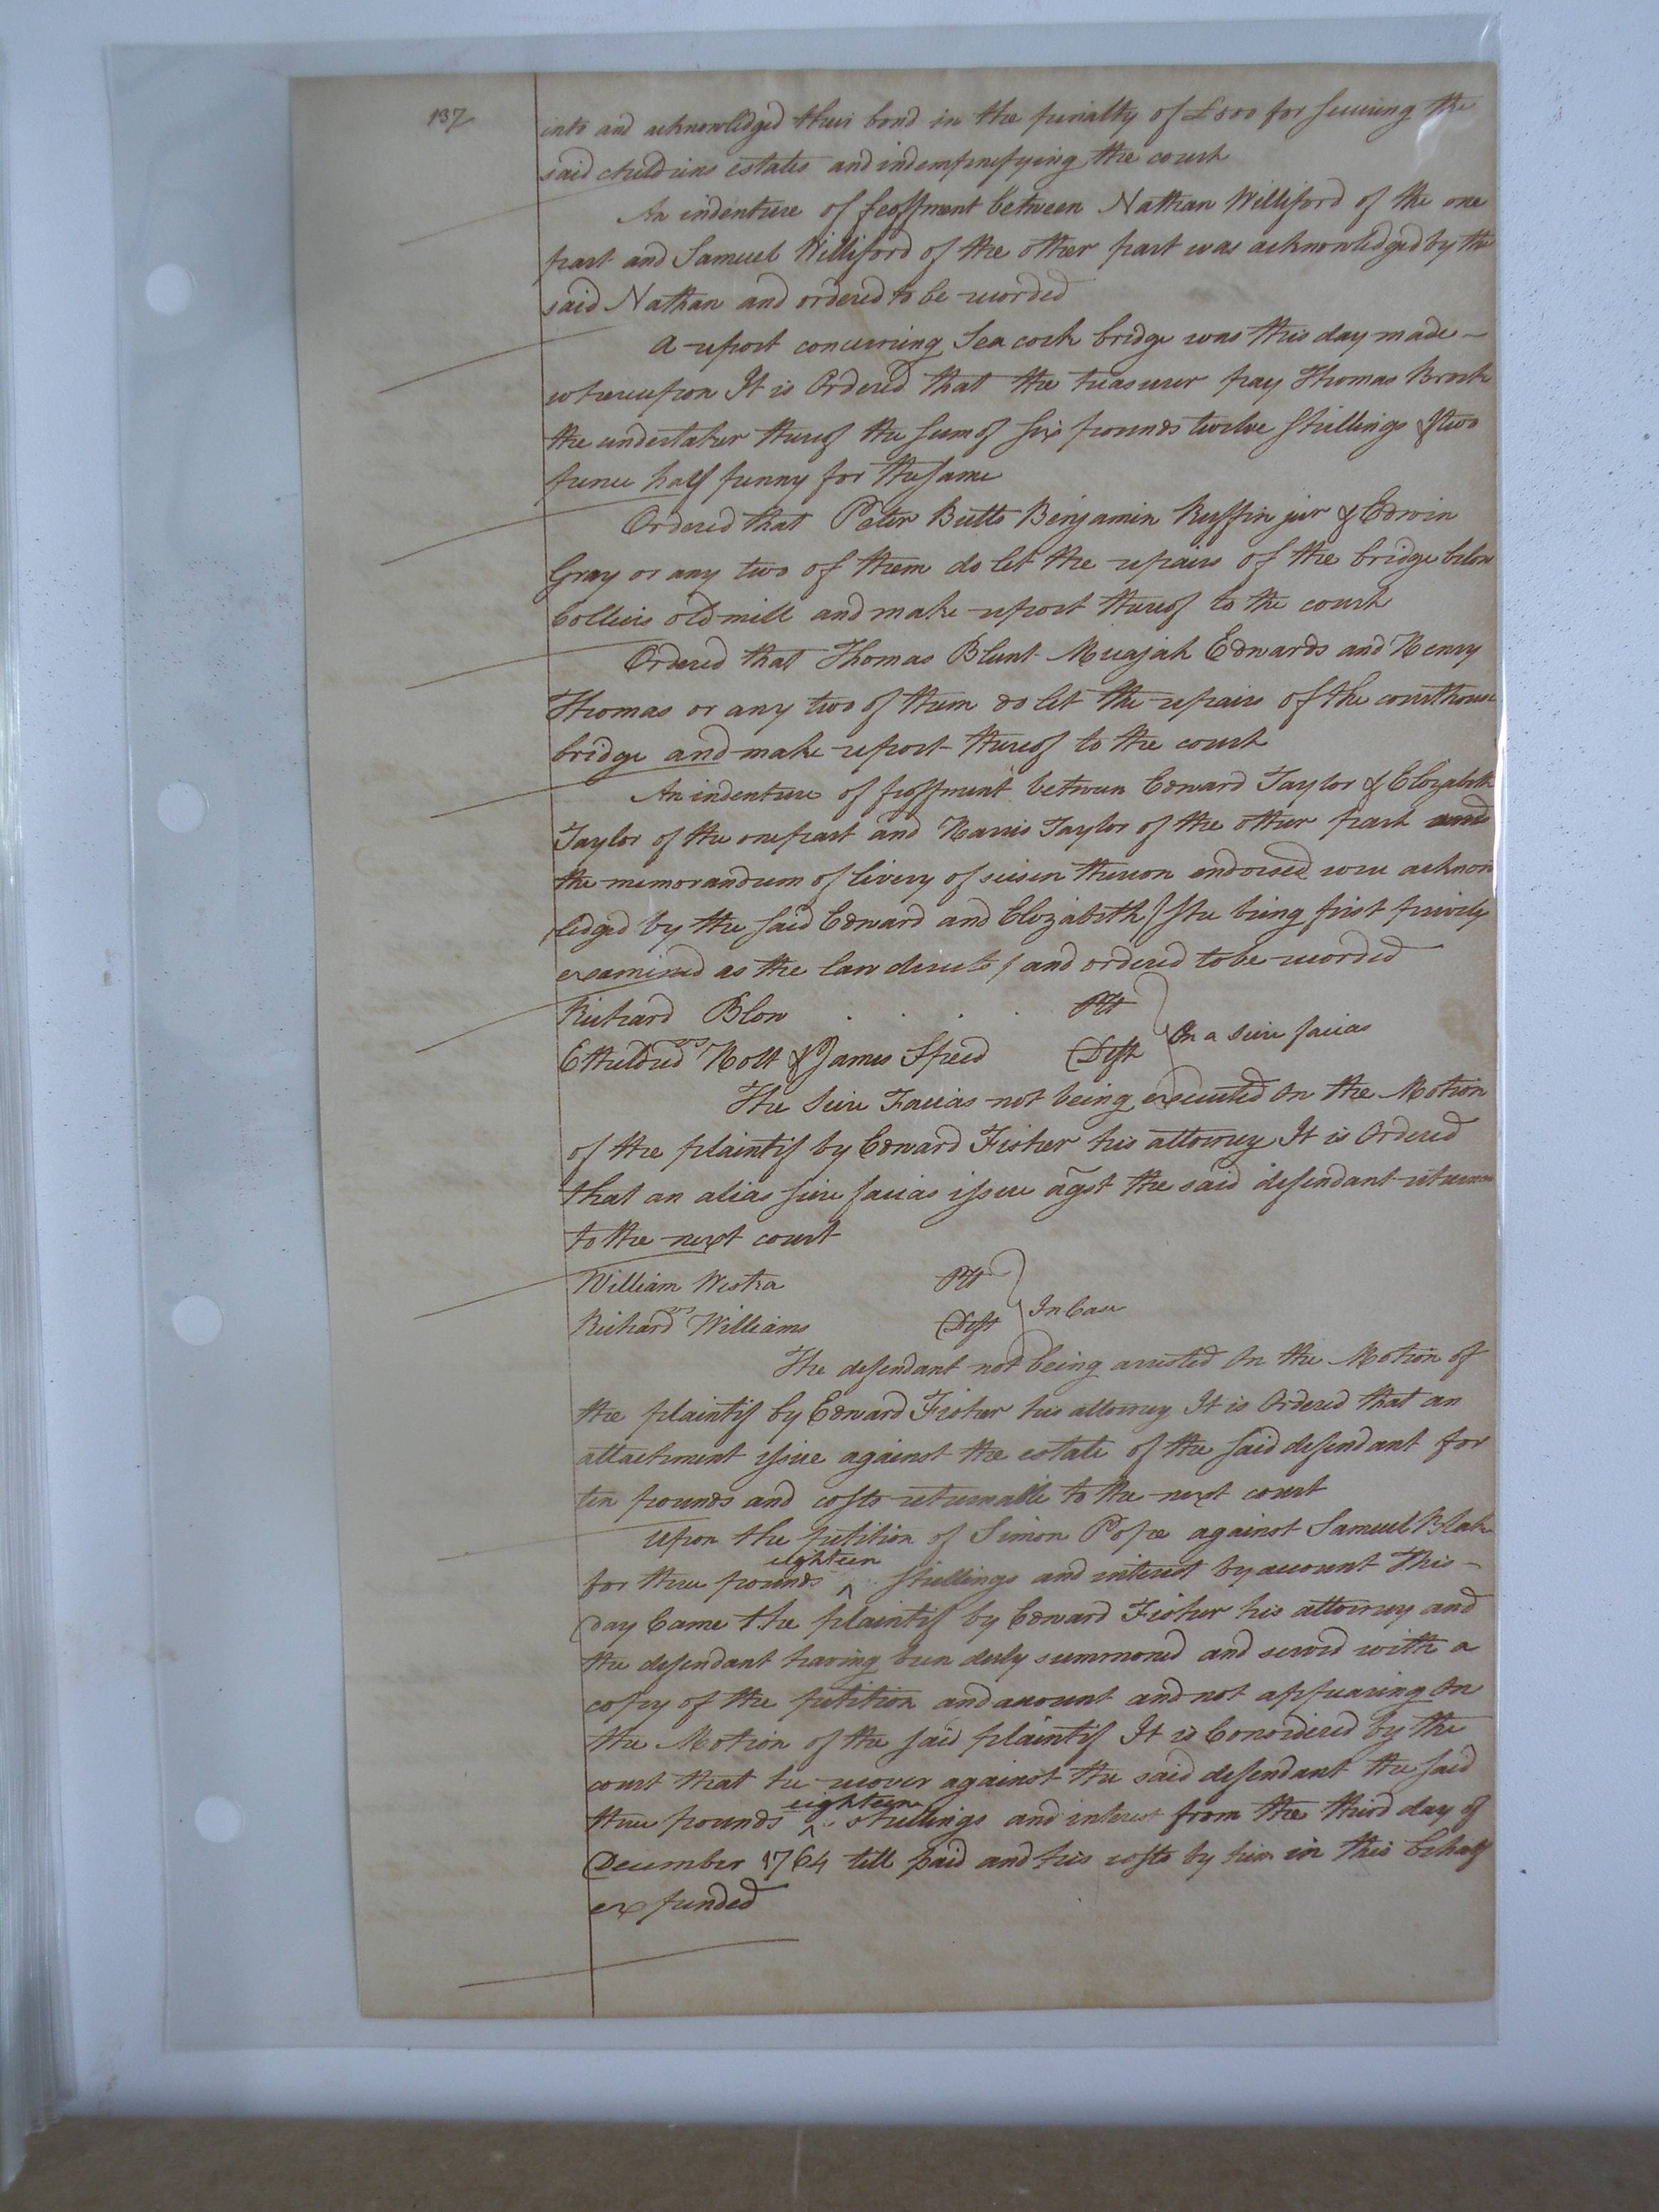 137
into and acknowledged their bond in the penalty of £500 for securing the
said childrens estates and indempnifying the court
An indenture of feoffment between Nathan Williford of the one
part and Samuel Williford of the other part was acknowledged by the
said Nathan and ordered to be recorded
A report concerning Sea cock bridge was this day made –
whereupon It is Ordered that the treasurer pay Thomas Brock
the undertaker thereof the sum of six pounds twelve shillings & two
pence half penny for the same
Ordered that Peter Butts Benjamin Ruffin jur & Edwin
Gray or any two of them do let the repairs of the bridge below
Colliers old mill and make report thereof to the court
Ordered that Thomas Blunt Micajah Edwards and Henry
Thomas or any two of them do let the repairs of the courthouse
bridge and make report thereof to the court
An indenture of feoffment between Edward Taylor & Elizabeth
Taylor of the one part and Harris Taylor of the other part and
the memorandum of livery of seisen thereon endorsed were acknow
ledged by the said Edward and Elizabeth / she being first privily
examined as the law directs / and ordered to be recorded
Richard Blow . . . . Plt
On a scire facias
vs
Etheldred Holt & James Speed Deft
The Scire Facias not being executed On the Motion
of the plaintif by Edward Fisher his attorney It is Ordered
that an alias scire facias issue agst the said defendant
to the next court
William Westra Plt
In Case
vs
Richard Williams Deft
The defendant not being arrested On the Motion of
the plaintif by Edward Fisher his attorney It is Ordered that an
attachment issue against the estate of the said defendant for
ten pounds and costs returnable to the next court
Upon the petition of Simon Pope against Samuel Blake
eighteen
for three pounds ^ shillings and interest by account This –
day Came the plaintif by Edward Fisher his attorney and
the defendant having been duly summoned and served with a
copy of the petition and account and not appearing On
the Motion of the said plaintif It is Considered by the
court that he recover against the said defendant the said
eighteen
three pounds ^ shillings and interest from the third day of
December 1764 till paid and his costs by him in this behalf
expended